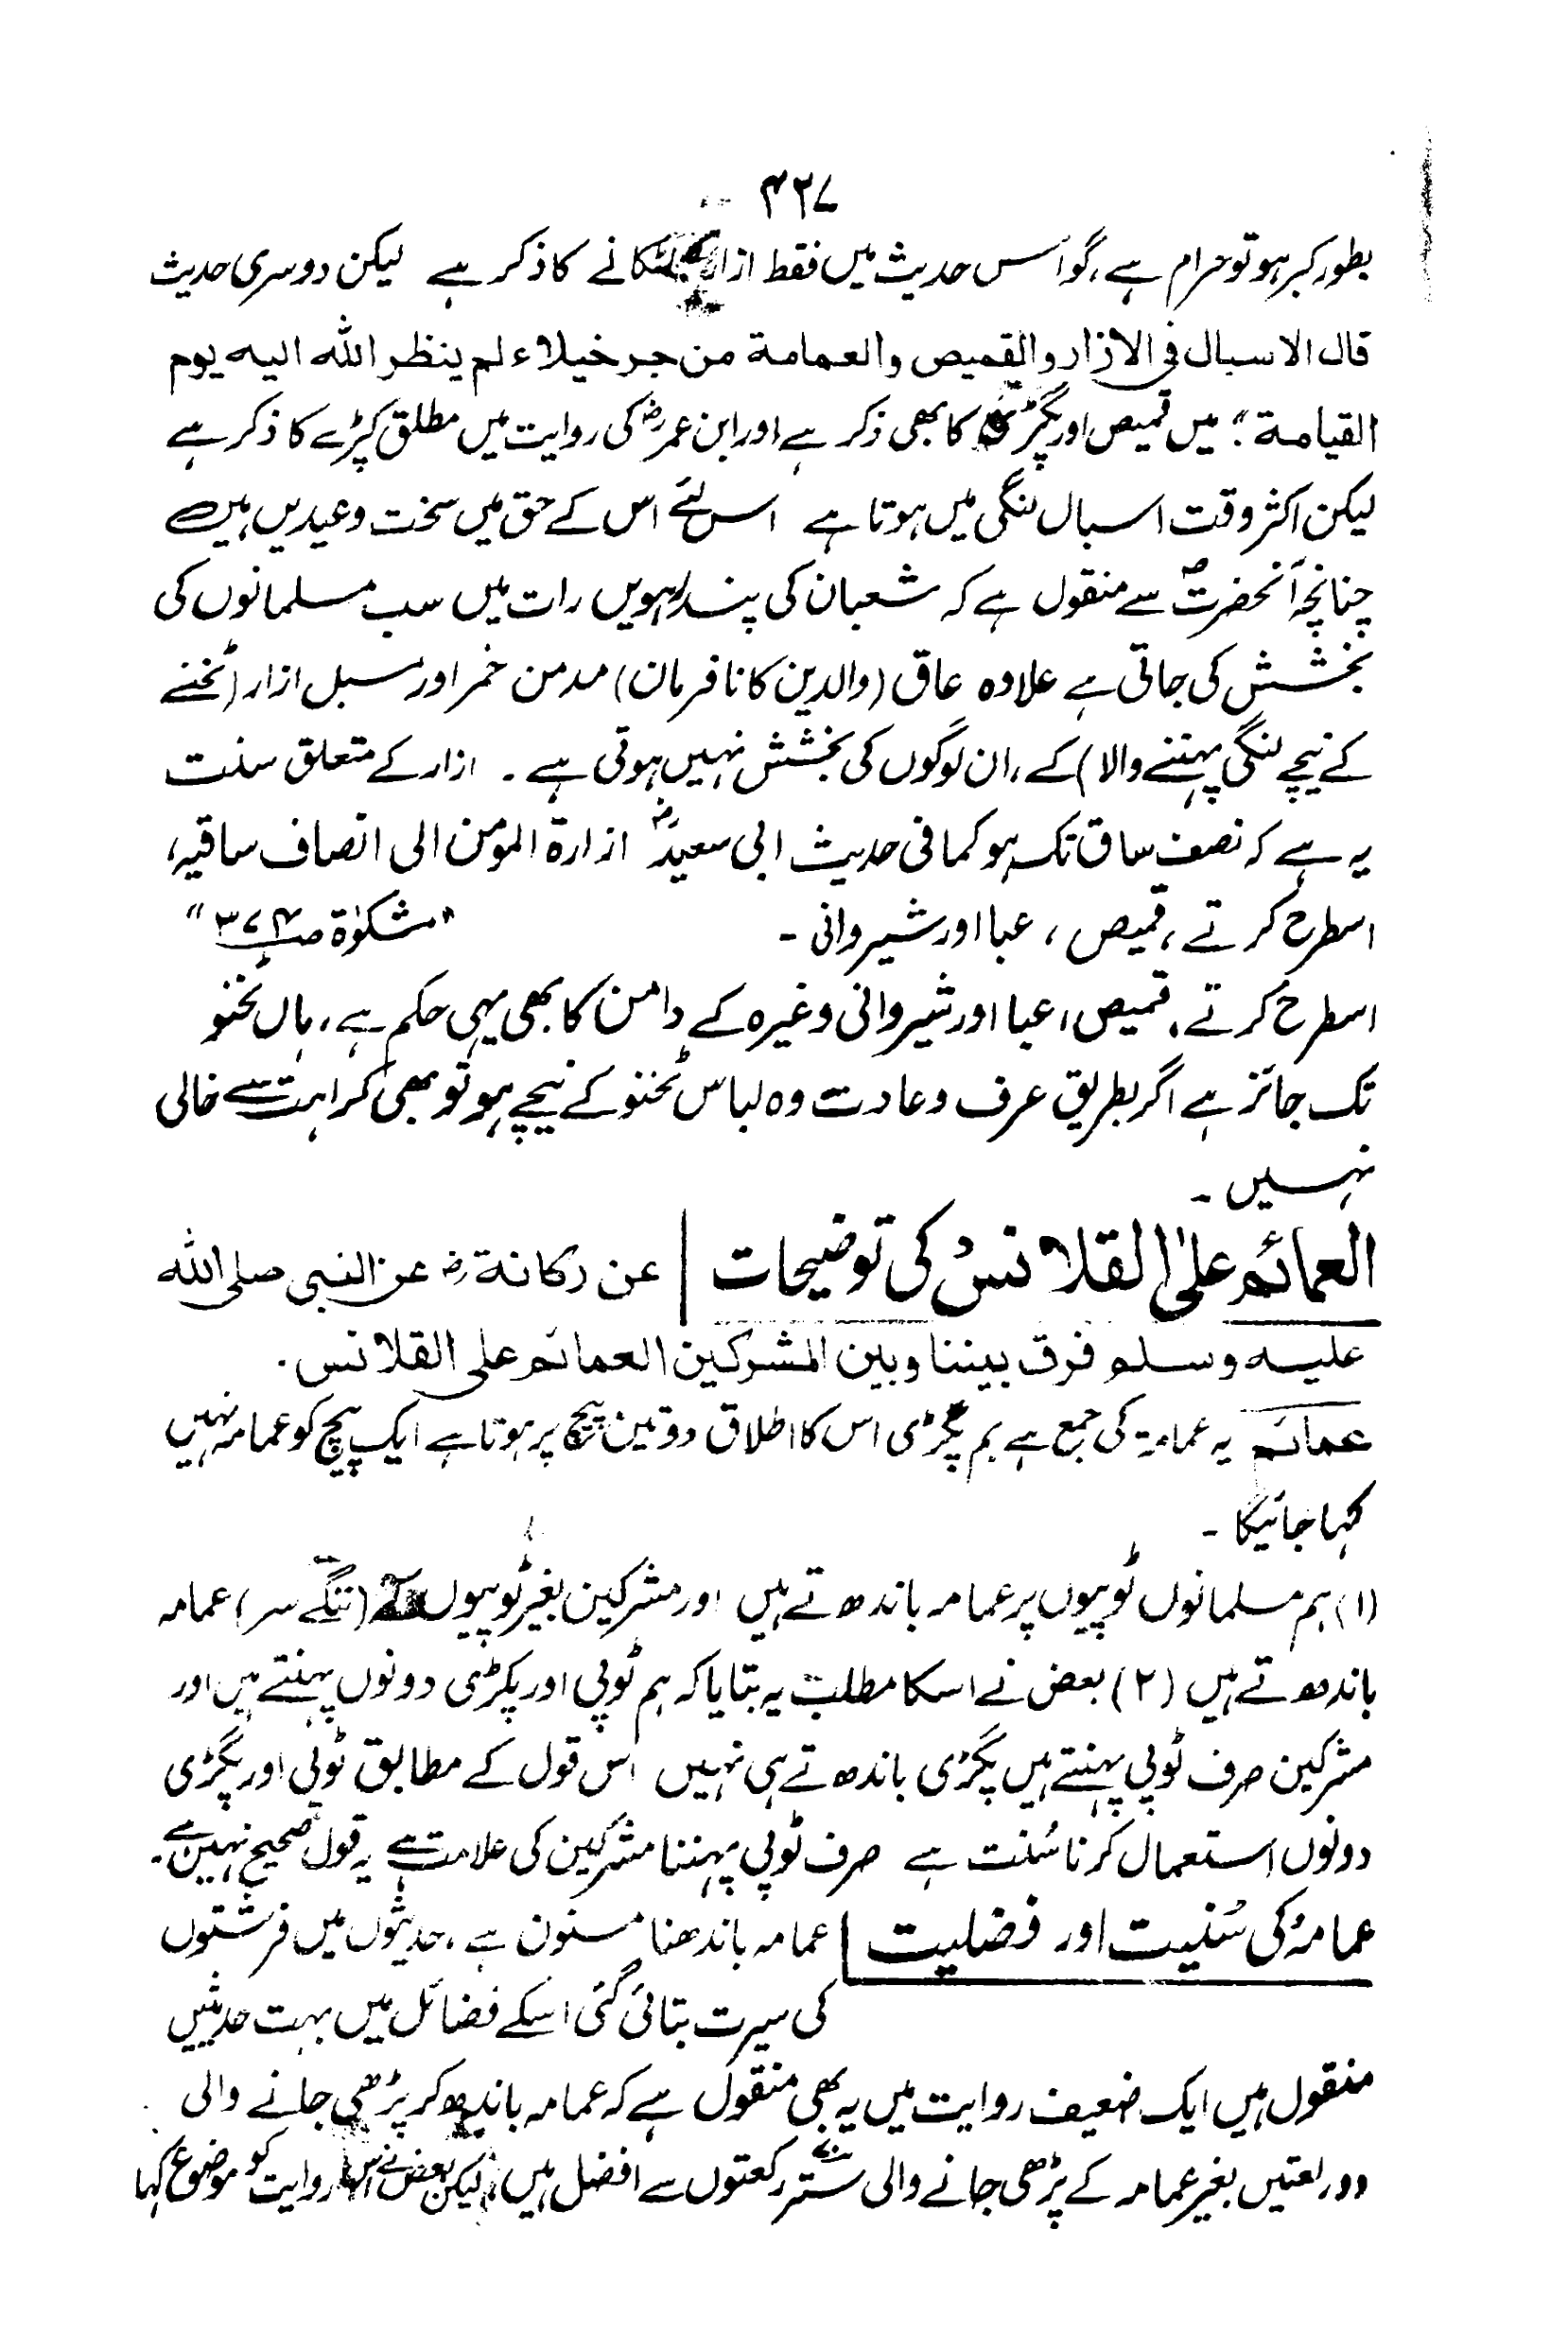 ۴۲۷
بطور کبر ہو تو حرام ہے، گو اس حدیث میں فقط ازار لٹکانے کا ذکر ہے لیکن دوسری حدیث
قال الاسبال فی الازار والقمیص والعمامة من جر خیلاء لم ینظر الله الیه یوم
القیامة ؛؛ میں قمیص اور پگڑی کا بھی ذکر ہے اور ابن عمرؓ کی روایت میں مطلق کپڑے کا ذکر ہے
لیکن اکثر وقت اسبال لنگی میں ہوتا ہے اس لئے اس کے حق میں سخت وعیدیں ہیں
چنانچہ آنحضرتؐ سے منقول ہے کہ شعبان کی پندرہویں رات میں سب مسلمانوں کی
بخشش کی جاتی ہے علاوہ عاق (والدین کا نافرمان) مدمن خمر اور مسبل ازار (ٹخنے
کے نیچے لنگی پہننے والا) کے، ان لوگوں کی بخشش نہیں ہوتی ہے۔ ازار کے متعلق سنت
یہ ہے کہ نصف ساق تک ہو کما فی حدیث ابی سعیدؓ ازارة المؤمن الی انصاف ساقیه،
اسطرح کرتے، قمیص، عبا اور شیروانی - "مشکوٰة ص۳۷۴"
اسطرح کرتے، قمیص، عبا اور شیروانی وغیرہ کے دامن کا بھی یہی حکم ہے، ہاں ٹخنو
تک جائز ہے اگر بطریق عرف وعادت وہ لباس ٹخنو کے نیچے ہو تو بھی کراہت سے خالی
نہیں ۔
العمائم علیٰ القلانس کی توضیحات | عن رکانةؓ عن النبی صلی الله
علیه وسلم فرق بیننا وبین المشرکین العمائم علی القلانس۔
عمائم یہ عمامۃ کی جمع ہے بم پگڑی اس کا اطلاق دو تین پیچ پر ہوتا ہے ایک پیچ کو عمامہ نہیں
کہا جائیگا ۔
(۱) ہم مسلمانوں ٹوپیوں پر عمامہ باندھتے ہیں اور مشرکین بغیر ٹوپیوں کے (ننگے سر) عمامہ
باندھتے ہیں (۲) بعض نے اسکا مطلب یہ بتایا کہ ہم ٹوپی اور پگڑی دونوں پہنتے ہیں اور
مشرکین صرف ٹوپی پہنتے ہیں پگڑی باندھتے ہی نہیں اس قول کے مطابق ٹوپی اور پگڑی
دونوں استعمال کرنا سُنت ہے صرف ٹوپی پہننا مشرکین کی علامت ہے یہ قول صحیح نہیں ہے۔
عمامہ کی سُنیت اور فضلیت | عمامہ باندھنا مسنون ہے، حدیثوں میں فرشتوں
کی سیرت بتائی گئی اسکے فضائل میں بہت حدیثیں
منقول ہیں ایک ضعیف روایت میں یہ بھی منقول ہے کہ عمامہ باندھ کر پڑھی جانے والی
دو رکعتیں بغیر عمامہ کے پڑھی جانے والی ستّر رکعتوں سے افضل ہیں، لیکن بعض نے اس روایت کو موضوع کہا